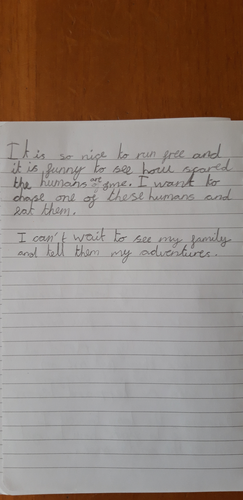 It is so nice to run free and
it is funny to see how scared
the humans are of me. I want to
chase one of these humans and
eat them.
I can't wait to see my family
and tell them my adventures.